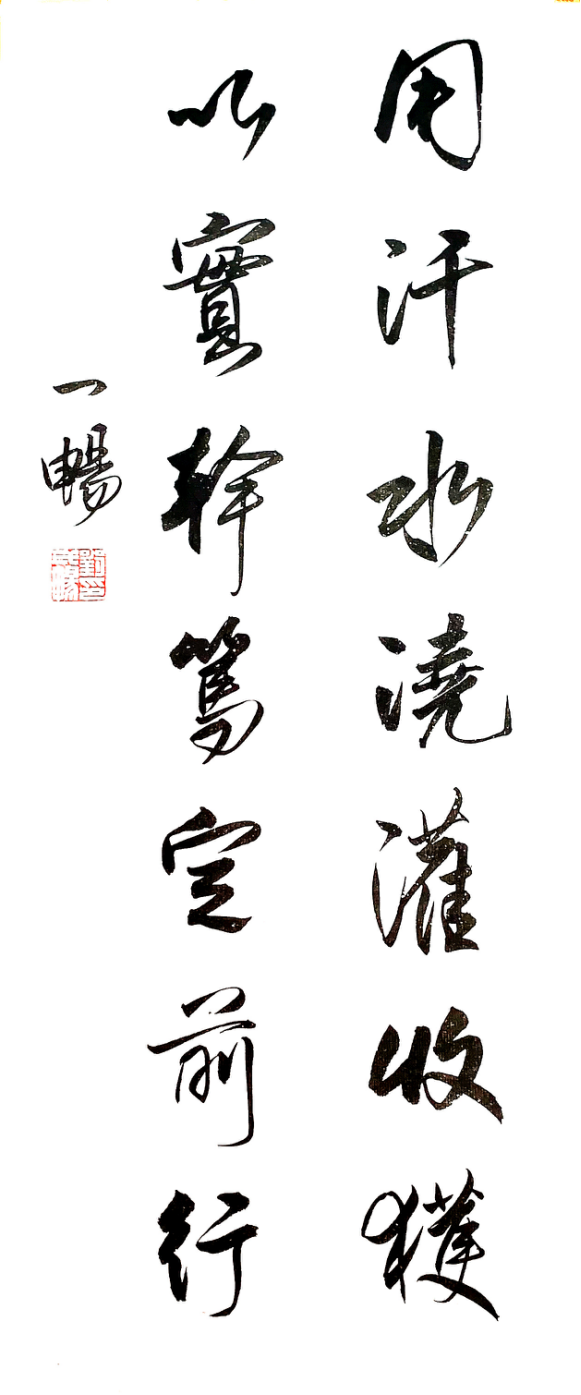 用汗水澆灌收獲
以實幹篤定前行
一暢